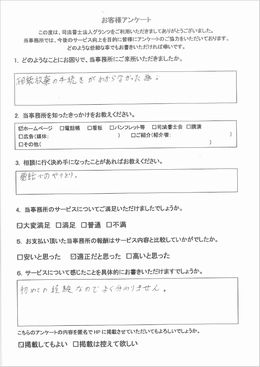 お客様アンケート
この度は、司法書士法人グランツをご利用いただきましてありがとうございました。
当事務所では、今後のサービス向上を目的に皆様にアンケートのご協力をいただいております。
どのような些細な事でもお書きいただければ幸いです。
1. どのようなことにお困りで、当事務所にご来所いただきましたか。
相続放棄の手続きがわからなかった為。
2. 当事務所を知ったきっかけをお教えください。
☑ホームページ □電話帳 □看板 □パンフレット等 □司法書士会 □講演
□広告(媒体: ) □ご紹介(紹介者: )
□その他(
3. 相談に行く決め手になったことがあればお教えください。
電話でのやりとり。
4. 当事務所のサービスについてご満足いただけましたでしょうか。
☑大変満足 □満足 □普通 □不満
5. お支払い頂いた当事務所の報酬はサービス内容と比較していかがでしたか。
□安いと思った ☑適正だと思った □高いと思った
6. サービスについて感じたことを具体的にお書きいただけますでしょうか。
初めての経験なのでよく分かりません。
こちらのアンケートの内容を匿名でHPに掲載させていただいてもよろしいでしょうか。
☑掲載してもよい □掲載は控えて欲しい